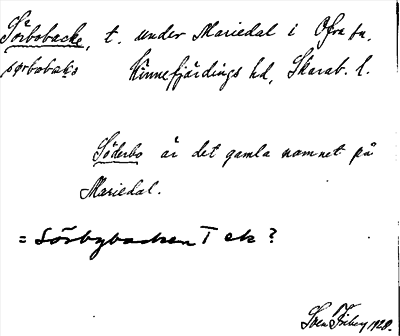 Sörbobacke, t. under Mariedal i Ova sn,
sørbobakə Kinnefjärdings hd, Skarab. l.
Söderbo är det gamla namnet på
Mariedal.
= Sörbybacken T ek?
Sven Fribey 1928.